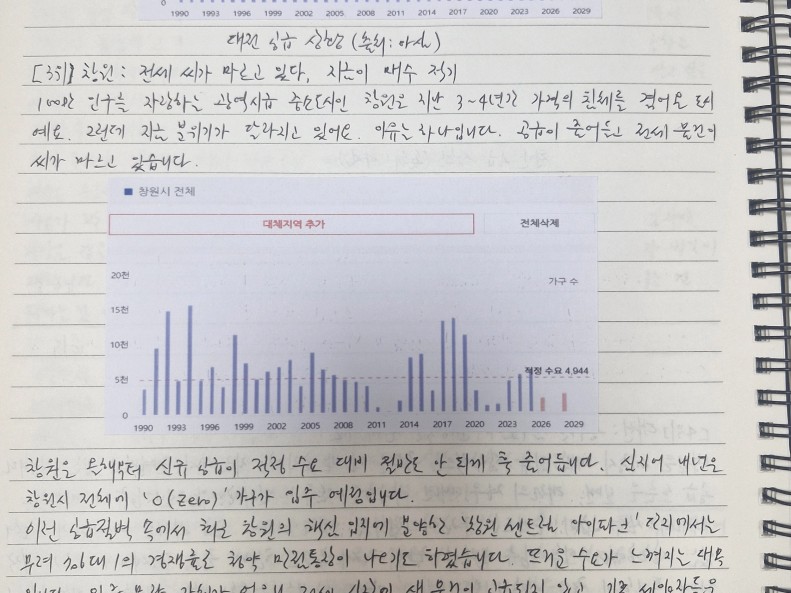 0
1990 1993 1996 1999 2002 2005 2008 2011 2014 2017 2020 2023 2026 2029
대전 공급 상황 (출처: 아실)
[3위] 창원: 전세 씨가 마르고 있다, 지금이 매수 적기
100만 인구를 자랑하는 광역시급 중소도시인 창원은 지난 3~4년간 가격의 침체를 겪어온 도시
예요. 그런데 지금 분위기가 달라지고 있어요. 이유는 하나입니다. 공급이 줄어들고 전세 물건이
씨가 마르고 있습니다.
창원시 전체
대체지역 추가 전체삭제
20천 가구 수
15천
10천
적정 수요 4,944
5천
0
1990 1993 1996 1999 2002 2005 2008 2011 2014 2017 2020 2023 2026 2029
창원은 올해부터 신규 공급이 적정 수요 대비 절반도 안 되게 뚝 줄어듭니다. 심지어 내년은
창원시 전체에 '0(Zero)' 가구가 입주 예정입니다.
이런 공급절벽 속에서 최근 창원의 핵심 입지에 분양한 '창원 센트럴 아이파크' 단지에서는
무려 706대 1의 경쟁률로 청약 만점통장이 나오기도 하였습니다. 뜨거운 수요가 느껴지는 대목